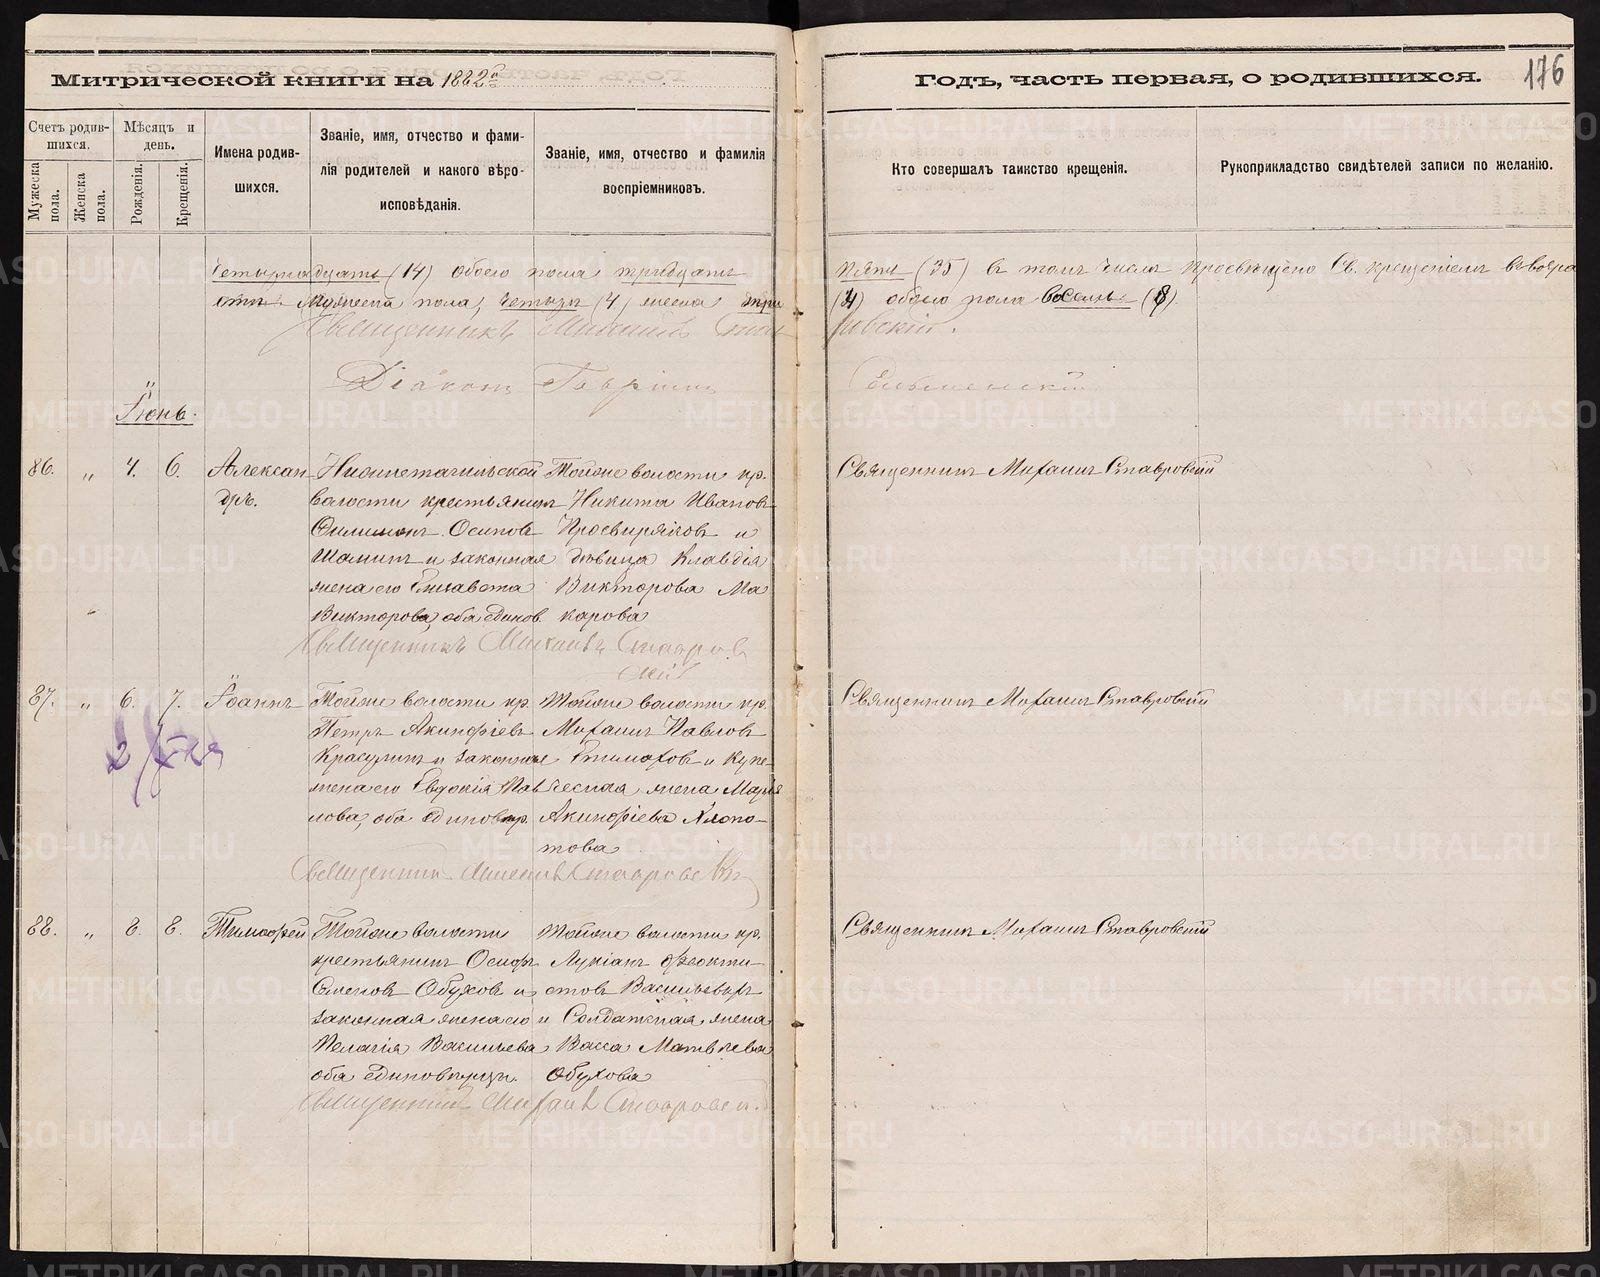 Митрической книги на 1882й
Годъ, часть первая, о родившихся. 176
Счетъ родившихся.
Мужеска пола.
Женска пола.
Мѣсяцъ и день.
Рожденія.
Крещенія.
Имена родившихся.
Званіе, имя, отчество и фамилія родителей и какого вѣроисповѣданія.
Званіе, имя, отчество и фамилія воспріемниковъ.
Кто совершалъ таинство крещенія.
Рукоприкладство свидѣтелей записи по желанію.
четырнадцать (14) обоего пола тридцать пять (35) въ томъ числѣ просвящено Св. крещеніемъ
мужеска пола, четыре (4) женска (4) обоего пола восемь (8).
Священникъ Михаилъ Ставровскій.
Діаконъ Гавріилъ
Іюнь.
86. " 4. 6.
Александръ.
Нижнетагильской
волости крестьянин
Филимонъ Осиповъ
Шаминъ и законная
жена его Елисавета
Викторова, оба единов.
Тойже волости кр.
Никита Ивановъ
Просвиряковъ и
дѣвица Клавдія
Викторова Ма
карова
Священникъ Михаилъ Ставровскій
Священникъ Михаилъ Ставровскій
87. " 6. 7.
Іоаннъ
Тойже волости кр.
Петръ Акинфіевъ
Красулинъ и законная
жена его Евдокія Пав
лова, оба единовѣр.
Тойже волости кр.
Михаилъ Павловъ
и Купе
ческая жена Марія
Акинфіева Хлопо-
това
Священникъ Михаилъ Ставровскій
Священникъ Михаилъ Ставровскій
88. " 8. 8.
Тимофей
Тойже волости
крестьянинъ Осифъ
Семеновъ Обуховъ и
законная жена его
Пелагія Васильева
оба единовѣрцы.
Тойже волости кр.
Лукіанъ Феокти-
стовъ Васильевыхъ
и Солдатская жена
Васса Матвѣева
Обухова
Священникъ Михаилъ Ставровскій
Священникъ Михаилъ Ставровскій
METRIKI.GASO-URAL.RU